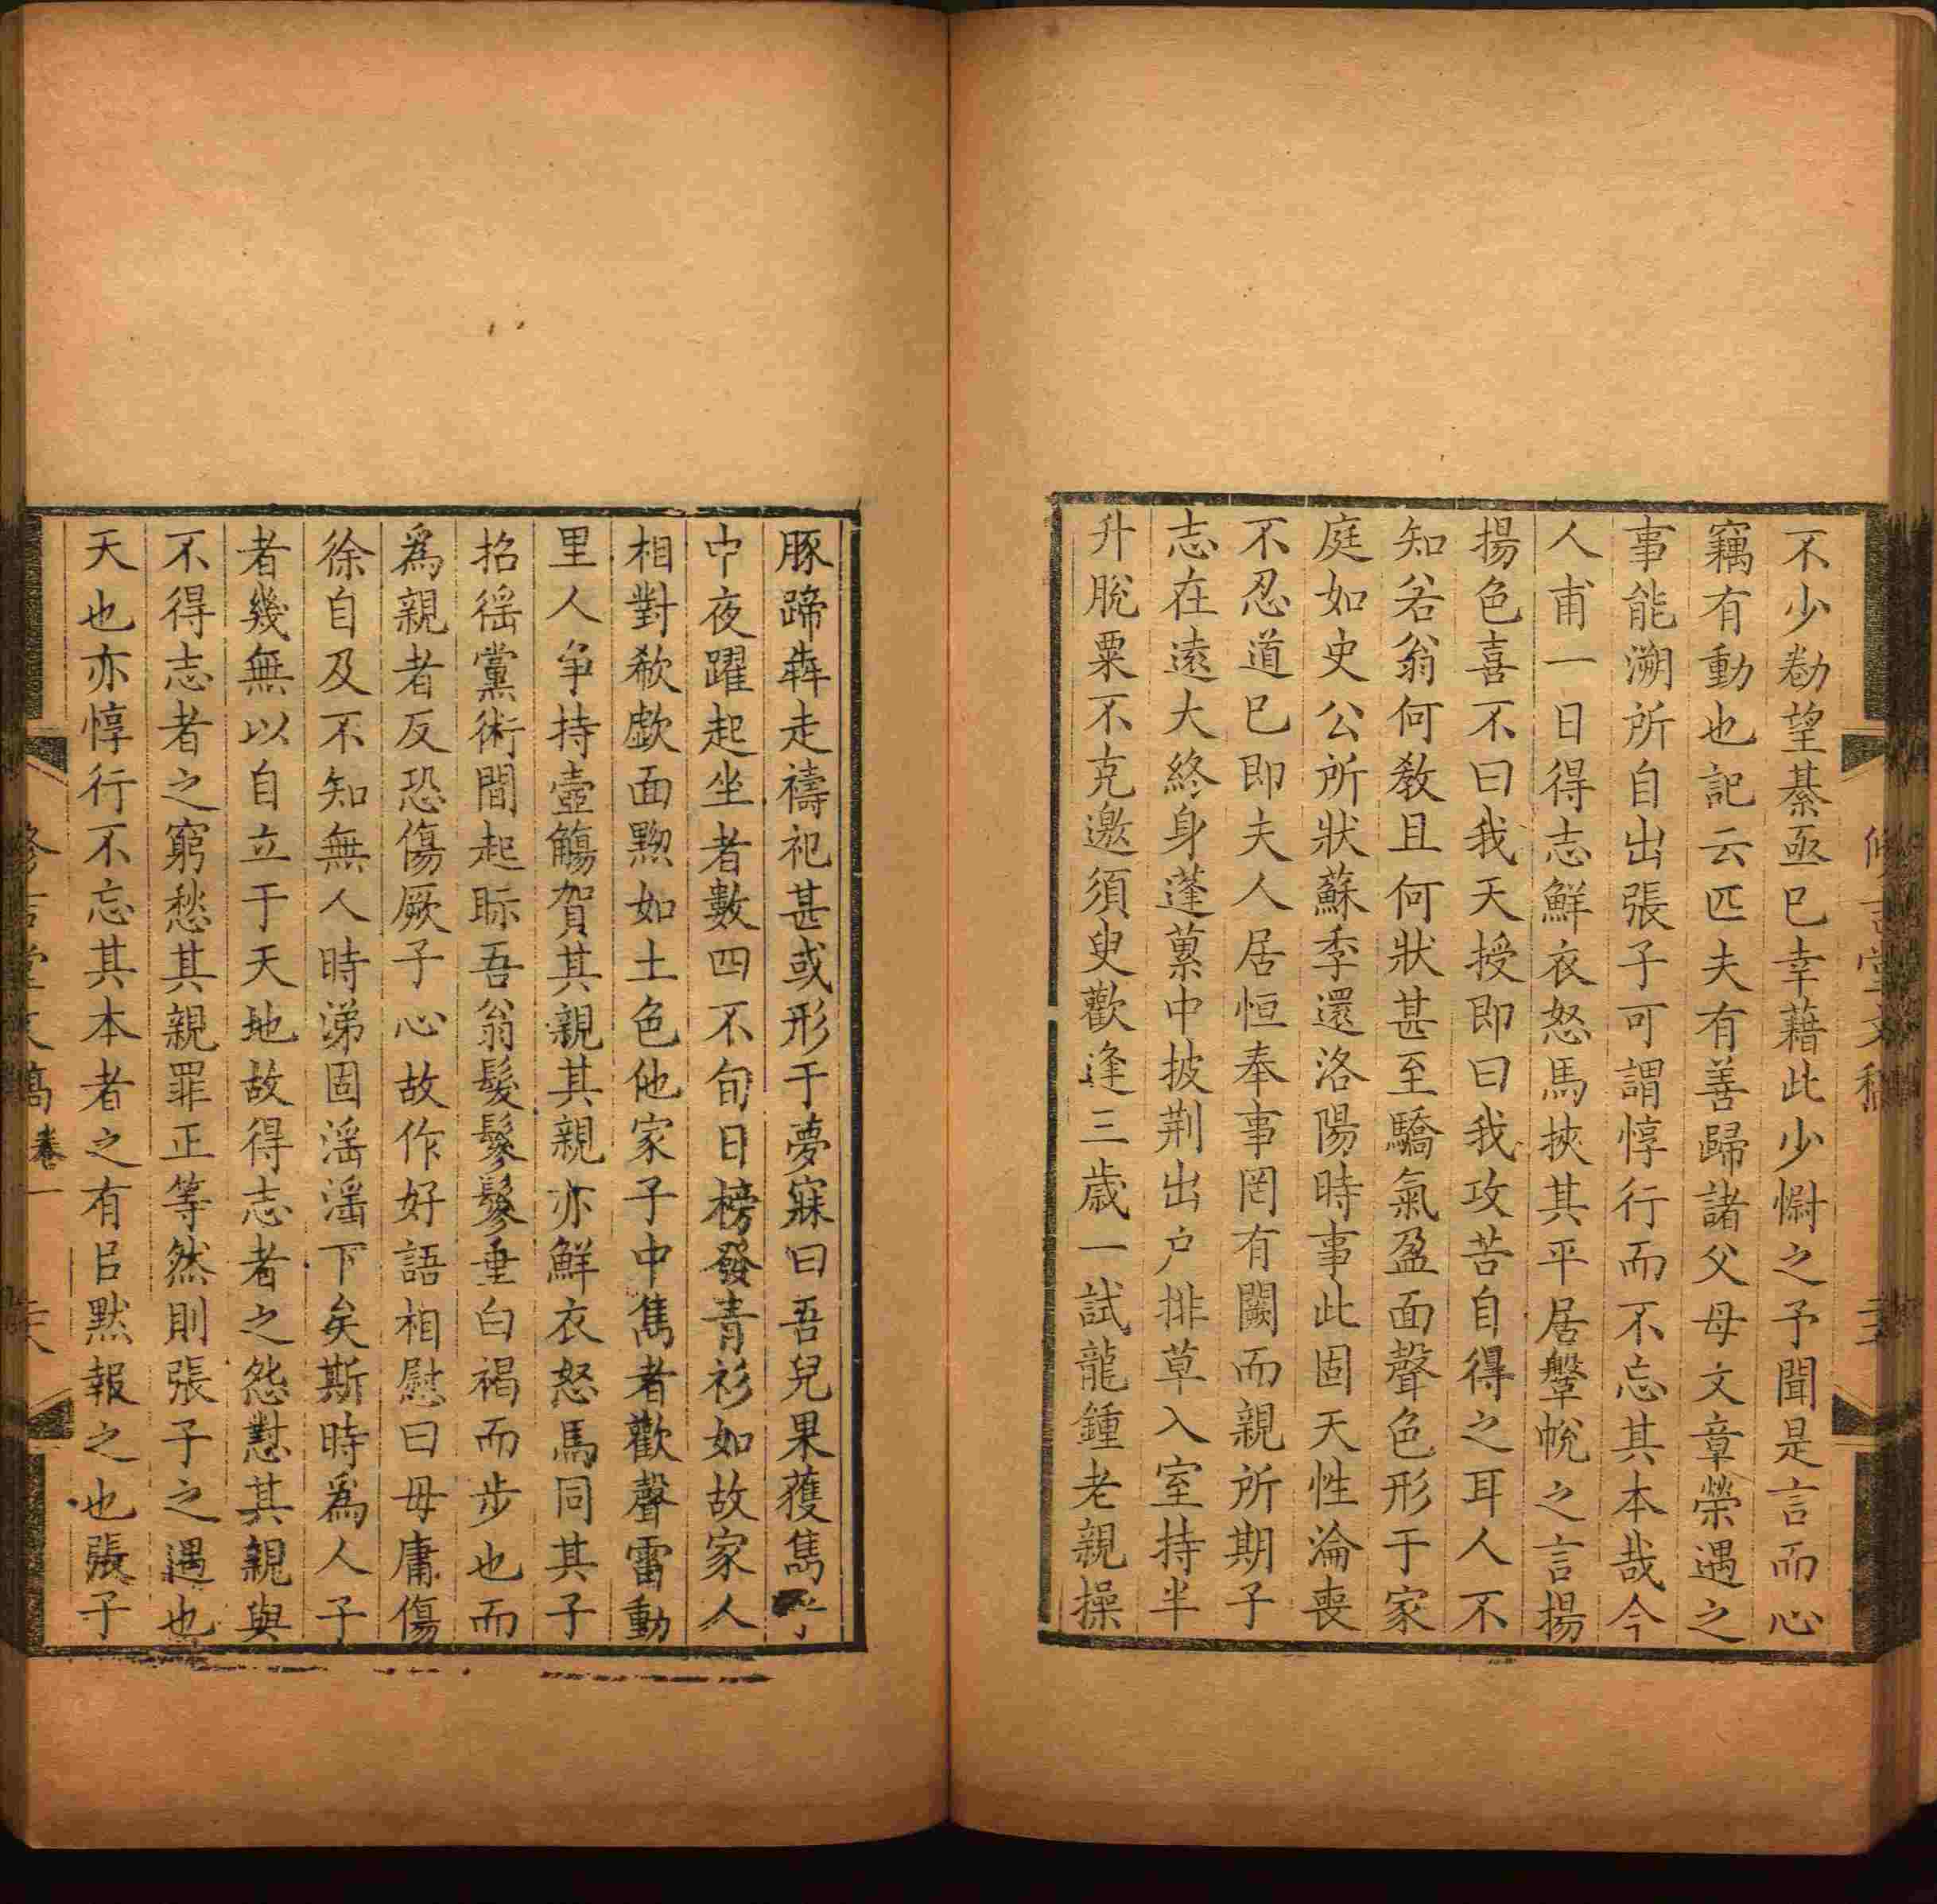 不少勸望綦亟已幸藉此少慰之予聞是言而心
竊有動也記云匹夫有善歸諸父母文章榮遇之
事能溯所自出張子可謂惇行而不忘其本哉今
人甫一日得志鮮衣怒馬挾其平居鞶帨之言揚
揚色喜不曰我天授即曰我攻苦自得之耳人不
知若翁何敎且何狀甚至驕氣盈面聲色形于家
庭如史公所狀蘇季還洛陽時事此固天性淪喪
不忍道已即夫人居恒奉事罔有闕而親所期子
志在遠大終身蓬藁中披荆出户排草入室持半
升脫粟不克邀須臾歡逢三歲一試龍鍾老親操
豚蹄犇走禱祀甚或形于夢寐曰吾兒果獲雋乎
中夜躍起坐者數四不旬日榜發青衫如故家人
相對欷歔面黝如土色他家子中雋者歡聲雷動
里人争持壺觴賀其親其親亦鮮衣怒馬同其子
招徭黨術間起眎吾翁髮鬖鬖垂白褐而步也而
爲親者反恐傷厥子心故作好語相慰曰毋庸傷
徐自及不知無人時涕固滛滛下矣斯時爲人子
者幾無以自立于天地故得志者之怨懟其親與
不得志者之窮愁其親罪正等然則張子之遇也
天也亦惇行不忘其本者之有㠯默報之也張子
堂文稿 卷一